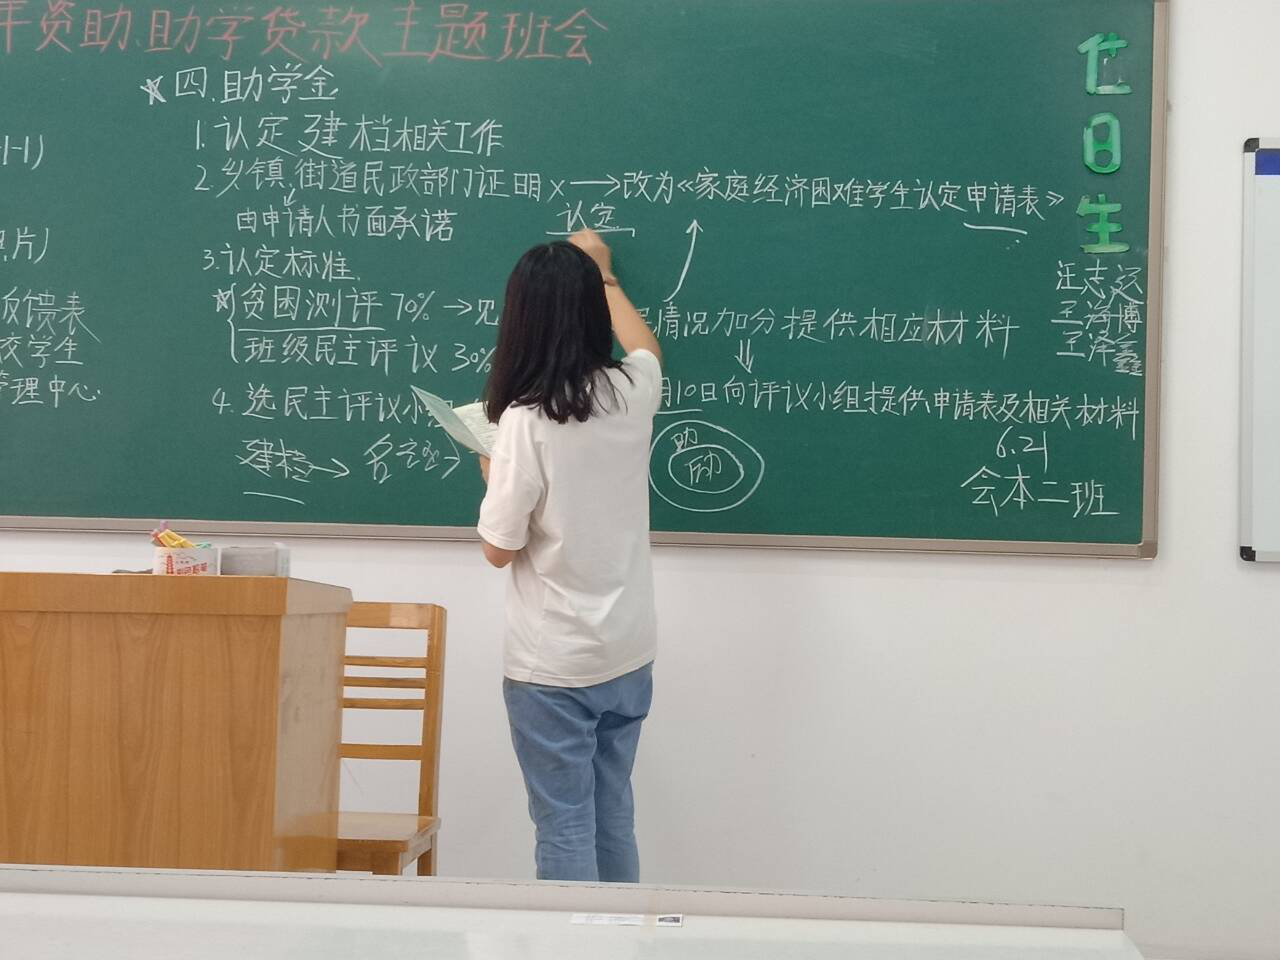 年资助、助学贷款主题班会
四.助学金
1.认定建档相关工作
2.乡镇、街道民政部门证明×→改为《家庭经济困难学生认定申请表》
由申请人书面承诺
认定
3.认定标准.
贫困测评70%→见
情况加分提供相应材料
班级民主评议30%
4.选民主评议小组
月10日向评议小组提供申请表及相关材料
建档→
助
励
6.21
会本二班
1-1)
片)
反馈表
校学生
管理中心
值日生
汪志
王海博
王泽鑫